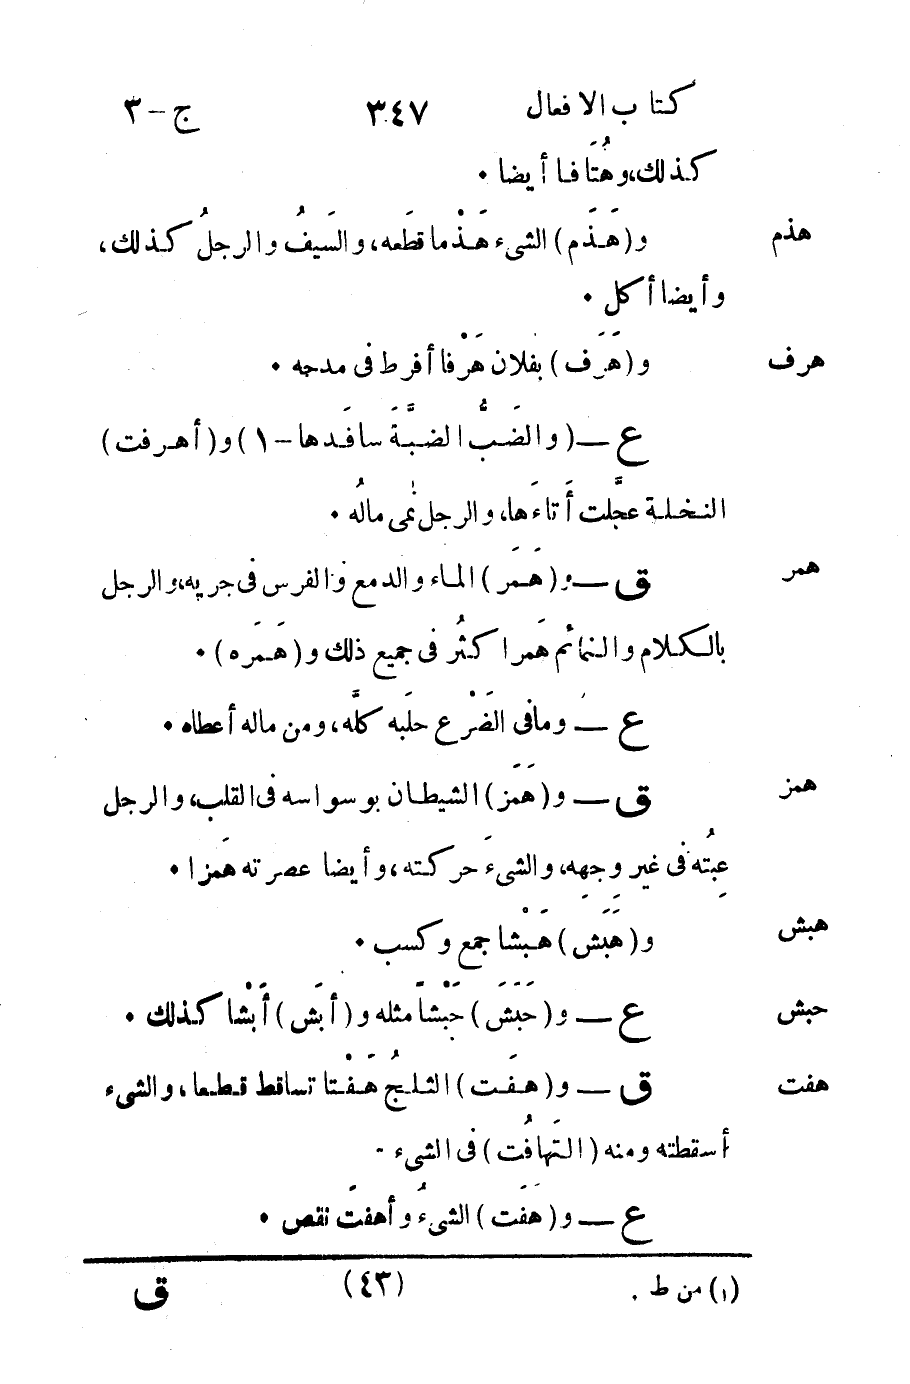 كتاب الافعال ٣٤٧ ج-٣
كذلك، وهُتَافا أيضا •
هذم و(هَذَم) الشىء هَذْما قطعه، والسَيفُ والرجلُ كذلك،
وأيضا أكل •
هرف و(هَرَف) بفلان هَرْفا أفرط فى مدحه •
ع – (والضَبُّ الضبَّةَ سافَدها -١) و(أهرفت)
النخلة عجَّلت أَتاءَها، والرجل نمى مالُه •
همر ق – و(هَمَر) الماء والدمع والفرس فى جريه، والرجل
بالكلام والنمائم هَمرا كثُر فى جميع ذلك و(هَمَره) •
ع – ومافى الضَرْع حلَبه كلَّه، ومن ماله أعطاه •
همز ق – و(هَمَز) الشيطان بوسواسه فى القلب، والرجل
عِبتُه فى غير وجهِه، والشىءَ حركته، وأيضا عصرته هَمزا •
هبش و(هَبَش) هَبْشا جمع وكسب •
حبش ع – و(حَبَشَ) حَبْشاً مثله و(أبَش) أَبْشا كذلك •
هفت ق – و(هفَت) الثلجُ هَفْتا تساقط قطعا، والشىء
أسقطته ومنه (التَهافُت) فى الشىء -
ع – و(هَفَت) الشىءُ وأهفَت نقص •
(١) من ط .
(٤٣) ق